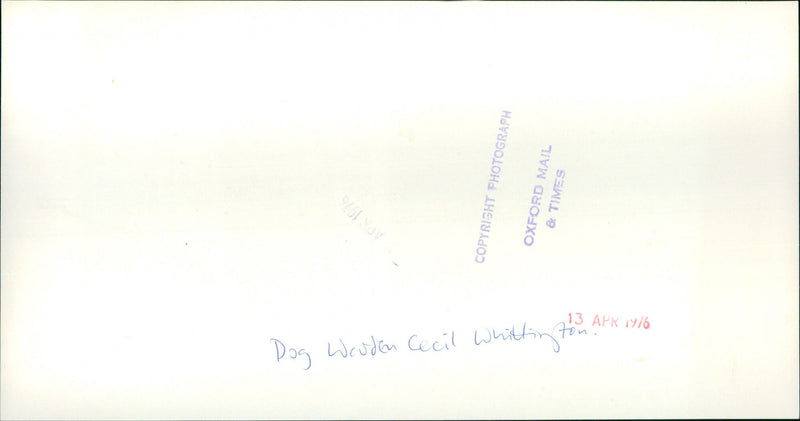 COPYRIGHT PHOTOGRAPH
OXFORD MAIL
& TIMES
APR 1976
13 APR 1976
Dog Warden Cecil Whittington.